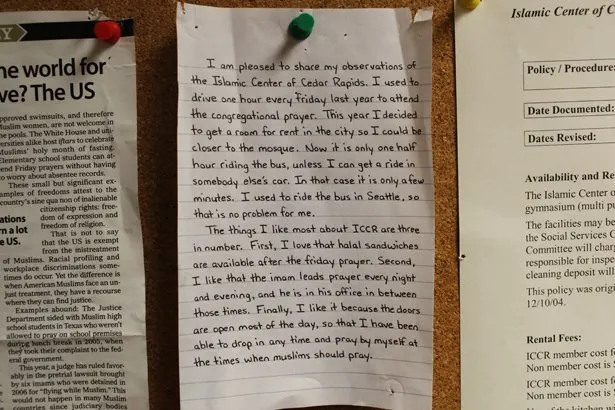 Y
he world for
ve? The US
pproved swimsuits, and therefore
Muslim women, are not welcome in
he pools. The White House and uni-
versities alike host iftars to celebrate
Muslims' holy month of fasting.
Elementary school students can at-
end Friday prayers without having
to worry about absentee records.
These small but significant ex-
amples of freedoms attest to the
country's sine qua non of inalienable
citizenship rights: free-
dom of expression and
freedom of religion.
That is not to say
that the US is exempt
from the mistreatment
of Muslims. Racial profiling and
workplace discriminations some-
times do occur. Yet the difference is
when American Muslims face an un-
just treatment, they have a recourse
where they can find justice.
Examples abound: The Justice
Department sided with Muslim high
school students in Texas who weren't
allowed to pray on school premises
during lunch break in 2005, when
they took their complaint to the fed-
eral government.
This year, a judge has ruled favor-
ably in the pretrial lawsuit brought
by six imams who were detained in
2006 for "flying while Muslim." This
would not happen in many Muslim
countries since judiciary bodies
ations
rn a lot
e US.
I am pleased to share my observations of
the Islamic Center of Cedar Rapids. I used to
drive one hour every friday last year to attend
the congregational prayer. This year I decided
to get a room for rent in the city so I could be
closer to the mosque. Now it is only one half
hour riding the bus, unless I can get a ride in
somebody else's car. In that case it is only a few
minutes. I used to ride the bus in Seattle, so
that is no problem for me.
The things I like most about ICCR are three
in number. First, I love that halal sandwiches
are available after the friday prayer. Second,
I like that the imam leads prayer every night
and evening, and he is in his office in between
those times. Finally, I like it because the doors
are open most of the day, so that I have been
able to drop in any time and pray by myself at
the times when muslims should pray.
Islamic Center of C
Policy / Procedure:
Date Documented:
Dates Revised:
Availability and Re
The Islamic Center o
gymnasium (multi pu
The facilities may be
the Social Services C
Committee will char
responsible for inspe
cleaning deposit will
This policy was origi
12/10/04.
Rental Fees:
ICCR member cost f
Non member cost is $
ICCR member cost f
Non member cost is $